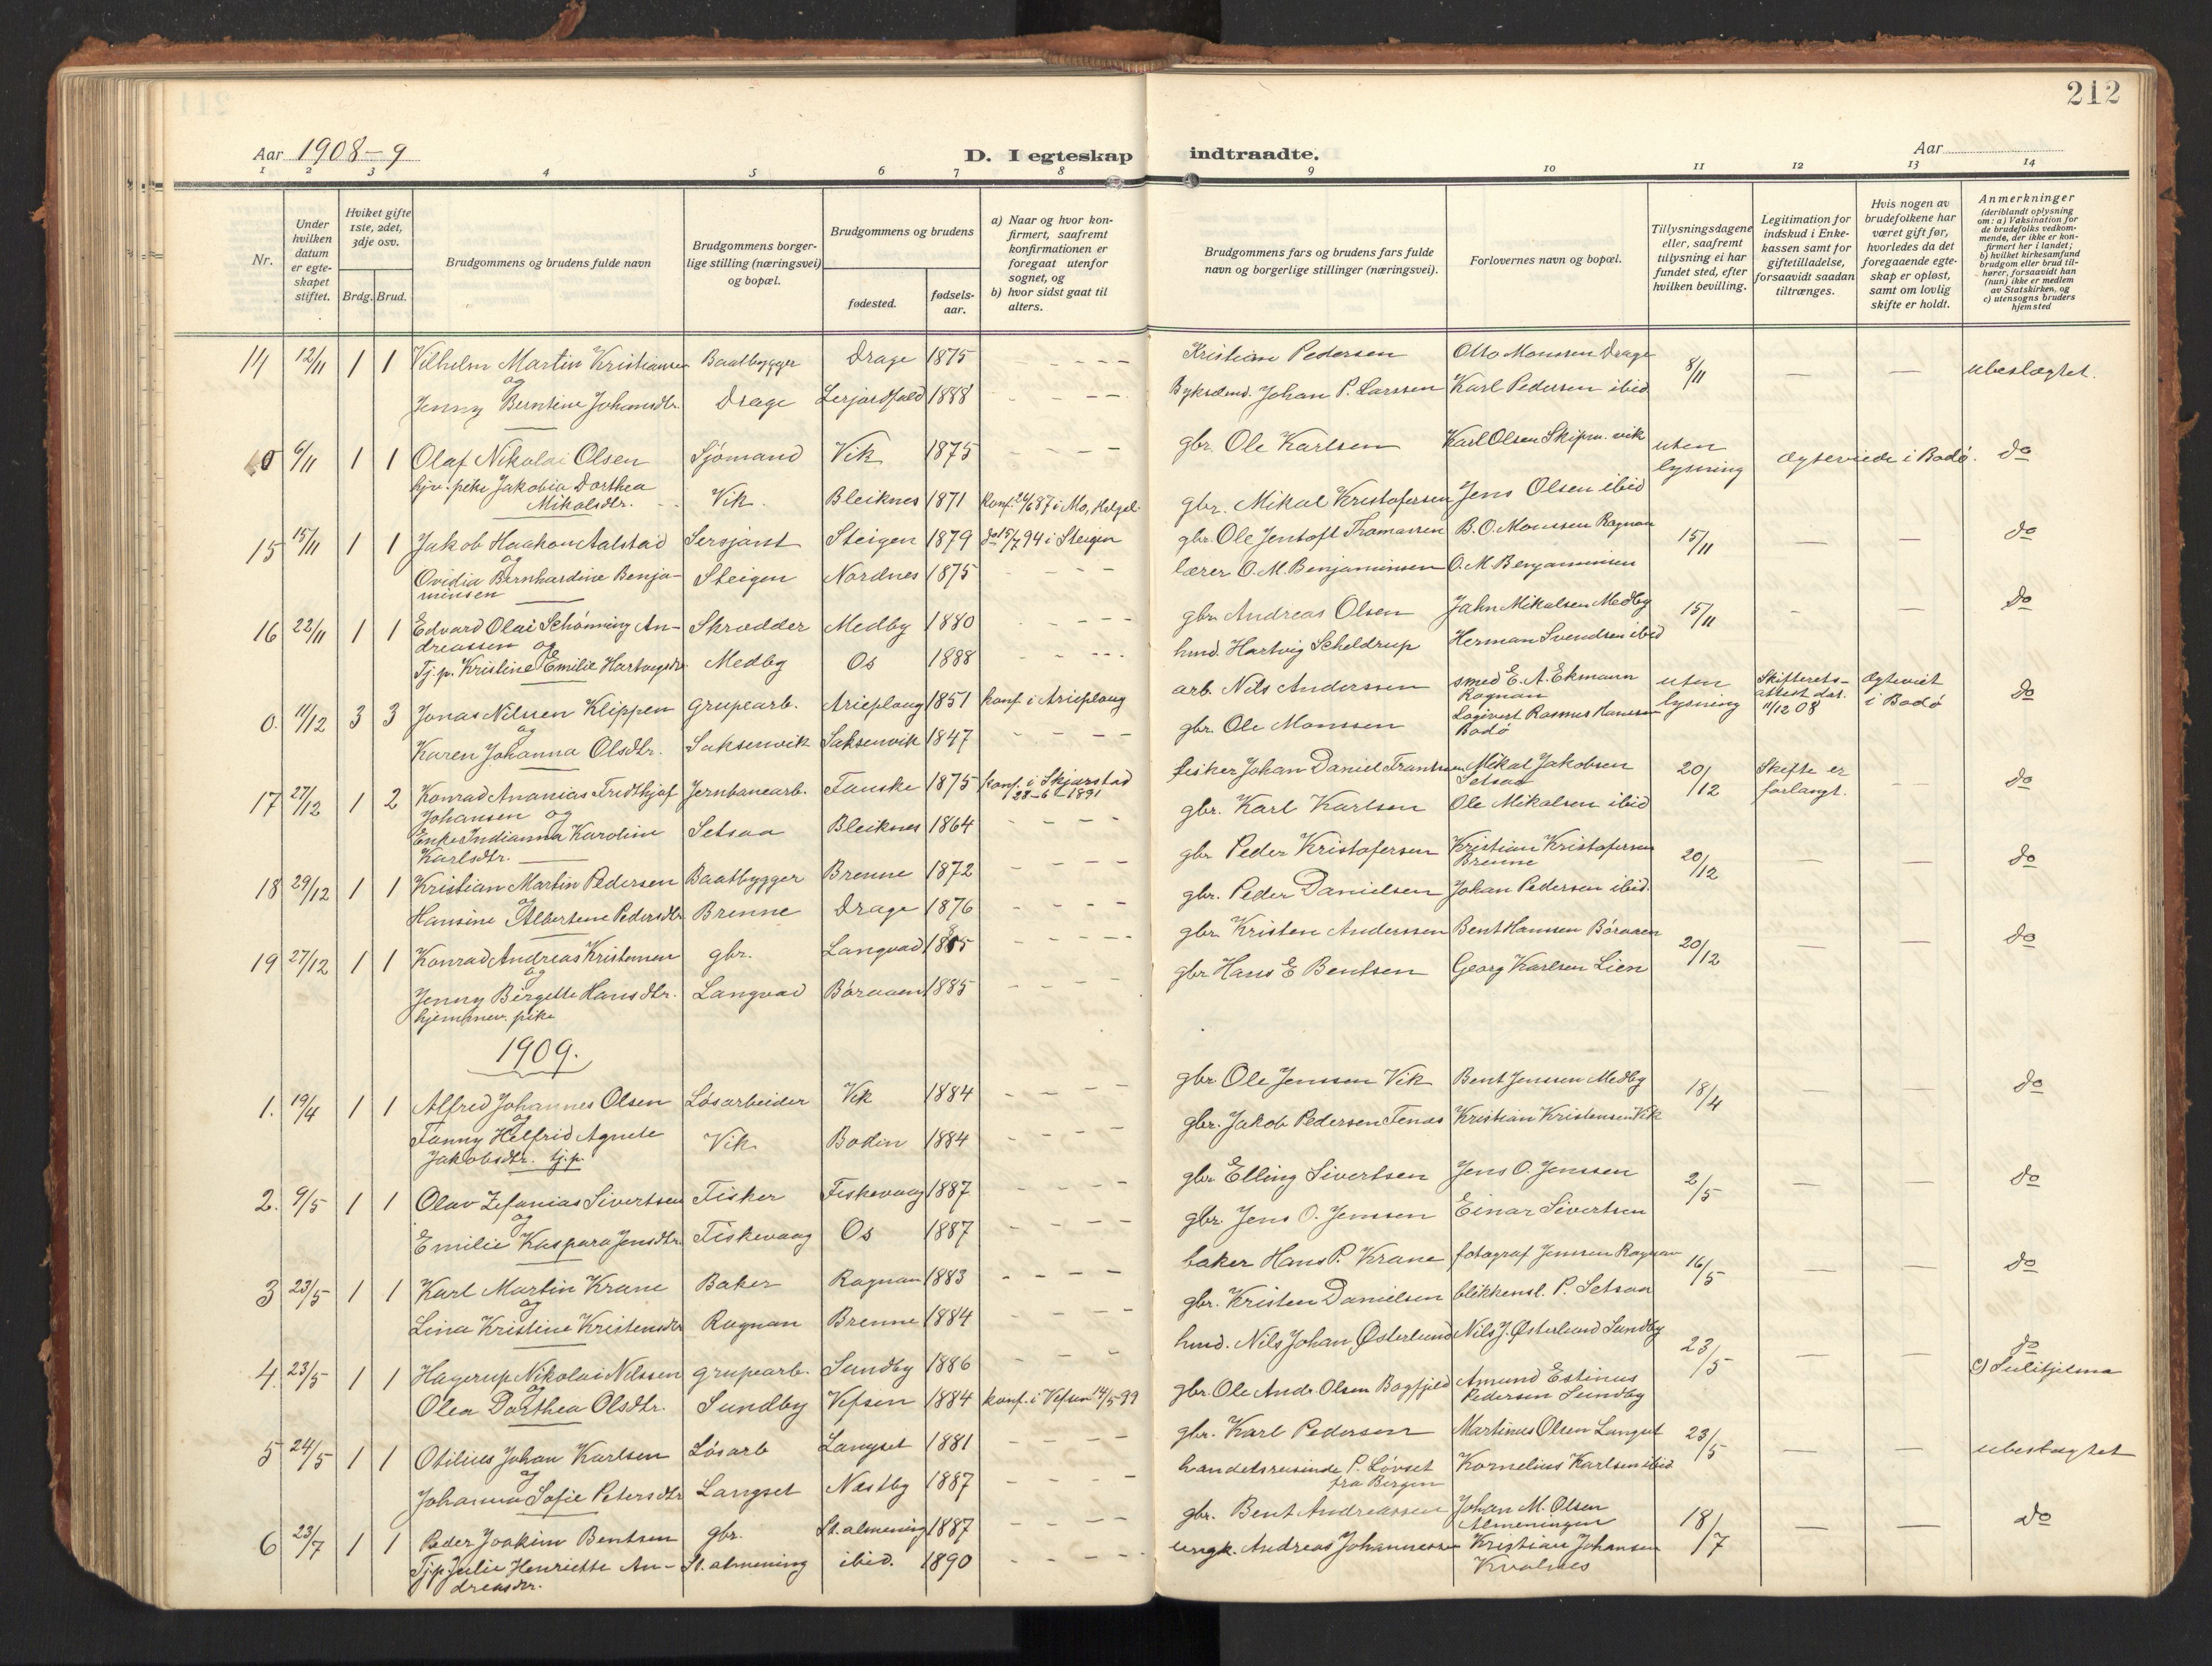 212
Aar 1908-9
D. I egteskap indtraadte.
Aar
1 2 3 4 5 6 7 8 9 10 11 12 13 14
Nr.
Under hvilken datum er egteskapet stiftet.
Hviket gifte 1ste, 2det, 3dje osv.
Brdg. Brud.
Brudgommens og brudens fulde navn
Brudgommens borgerlige stilling (næringsvei) og bopæl.
Brudgommens og brudens
fødested.
fødselsaar.
a) Naar og hvor konfirmert, saafremt konfirmationen er foregaat utenfor sognet, og
b) hvor sidst gaat til alters.
Brudgommens fars og brudens fars fulde navn og borgerlige stillinger (næringsvei).
Forlovernes navn og bopæl.
Tillysningsdagene eller, saafremt tillysning ei har fundet sted, efter hvilken bevilling.
Legitimation for indskud i Enkekassen samt for giftetilladelse, forsaavidt saadan tiltrænges.
Hvis nogen av brudefolkene har været gift før, hvorledes da det foregaaende egteskap er opløst, samt om lovlig skifte er holdt.
Anmerkninger (deriblandt oplysning om: a) Vaksination for de brudefolks vedkommende, der ikke er konfirmert her i landet; b) hvilket kirkesamfund brudgom eller brud tilhører, forsaavidt han (hun) ikke er medlem av Statskirken, og c) utensogns bruders hjemsted
14 12/11 1 1 Vilhelm Martin Kristiansen Baatbygger Drage 1875 - - - - Kristian Pedersen Otto Monssen Drage 8/11 — — ubeslægtet.
og
Jenny Berntine Johansdtr. Drage Lerjordfald 1888 - - - - Johan P. Larssen Karl Pedersen ibid
0 6/11 1 1 Olaf Nikolai Olsen Sjømand Vik 1875 - - - - gbr. Ole Karlsen Karl Olsen Skipm. vik uten lysning Ægteviede i Bodø. do
hjv. pike Jakobia Dorthea Mikalsdtr. Vik. Bleiknes 1871 Konf. 26/6 87 i Mo, Helgel. gbr. Mikal Kristofersen Jens Olsen ibid
15 15/11 1 1 Jakob Haakon Aalstad Sersjant Steigen 1879 do 15/7 94 i Steigen gbr. Ole Jentoft Thomassen B. O. Monssen Rognan 15/11 — — do
og
Ovidia Bernhardine Benjaminsen Steigen Nordnes 1875 - - - lærer O. M. Benjaminsen O. M. Benjaminsen
16 22/11 1 1 Edvard Olai Schønning Andreassen og Skrædder Medby 1880 - - - - gbr. Andreas Olsen Jahn Mikalsen Medby 15/11 - — do
Tj. p. Kristine Emilie Hartvigsdtr. Medby Os 1888 - - - - hmd. Hartvig Scheldrup Herman Svendsen ibid
0. 11/12 3 3 Jonas Nilssen Klippen grupearb. Arieplaug 1851 konf i Arieplaug arb. Nils Anderssen smed E. A. Ekmann Rognan uten lysning Skifterets-attest dat. 11/12 08 Ægteviet i Bodø do
og
Karen Johanna Olsdtr. Saksenvik Saksenvik 1847 - - - - gbr. Ole Monssen Rasmus Hanssen Bodø
17 27/12 1 2 Konrad Ananias Fridthjof Johansen og Jernbanearb. Fauske 1875 konf. i Skjærstad 28-6-1891 fisker Johan Daniel Frantsen Mikal Jakobsen Setsaa 20/12 Skifte er forlangt. - - do
Enke Indianna Karoline Karlsdtr. Setsaa Bleiknes 1864 - - - - gbr. Karl Karlsen Ole Mikalsen ibid
18 29/12 1 1 Kristian Martin Pedersen Baatbygger Brenne 1872 - - - - gbr Peder Kristofersen Kristian Kristofersen Brenne 20/12 — — do
og
Hansine Albertine Pedersdtr Brenne Drage 1876 - - - - gbr. Peder Danielsen Johan Pedersen ibid.
19 27/12 1 1 Konrad Andreas Kristensen gbr. Langvad 1885 - - - - gbr Kristen Anderssen Bent Hanssen Børaaen 20/12 — — do
og
Jenny Bergitte Hansdtr. hjemmev. pike Langvad Børaaen 1885 - - - gbr Hans E Bentsen Georg Karlsen Lien
1909.
1. 19/4 1 1 Alfred Johannes Olsen Løsarbeider Vik 1884 - - - gbr. Ole Jenssen Vik Bent Jenssen Medby 18/4 — — do
og
Fanny Helfrid Agnete Jakobsdtr. tj.p. Vik Bodin 1884 - - - - gbr. Jakob Pedersen Kristian Kristensen Vik
2. 9/5 1 1 Olav Zefanias Sivertsen Fisker Fiskevaag 1887 - - - - gbr Elling Sivertsen Jens O. Jenssen 2/5 — — do
og
Emilie Kaspara Jensdtr. Fiskevaag Os 1887 - - - - gbr. Jens O. Jenssen Einar Sivertsen
3 23/5 1 1 Karl Martin Krane Baker Rognan 1883 - - - - baker Hans P. Krane fotograf Jenssen Rognan 16/5 — — do
og
Lina Kristine Kristensdtr Rognan Brenne 1884 - - - - gbr. Kristen Danielsen blikkensl. P. Setsaa
4. 23/5 1 1 Hagerup Nikolai Nilssen grupearb. Sundby 1886 - - - hmd. Nils Johan Østerlund Nils J. Østerlund Sundby 23/5 — — do c) Sulitjelma
og
Olea Dorthea Olsdtr. Sundby Vefsen 1884 konf. i Vefsen 14/5 99 gbr. Ole Andr. Olsen Bagfjeld Amund Estinus Pedersen Sundby
5 24/5 1 1 Otilius Johan Karlsen Løsarb Langset 1881 - - - - gbr. Karl Pedersen Martinus Olsen Langset 23/5 — — ubeslægtet
og
Johanna Sofie Petersdtr Langset Næstby 1887 - - - - handelsreisende P. Løvset fra Bergen Kornelius Karlsen ibid
6 23/7 1 1 Peder Joakim Bentsen gbr. St. almening 1887 - - - - gbr. Bent Andreassen Johan M. Olsen Almeningen 18/7 — — do
Tj.p. Julie Henriette Andreasdtr. St. almening ibid. 1890 - - - - ungk. Andreas Johannessen Kristian Johansen Kvalnes